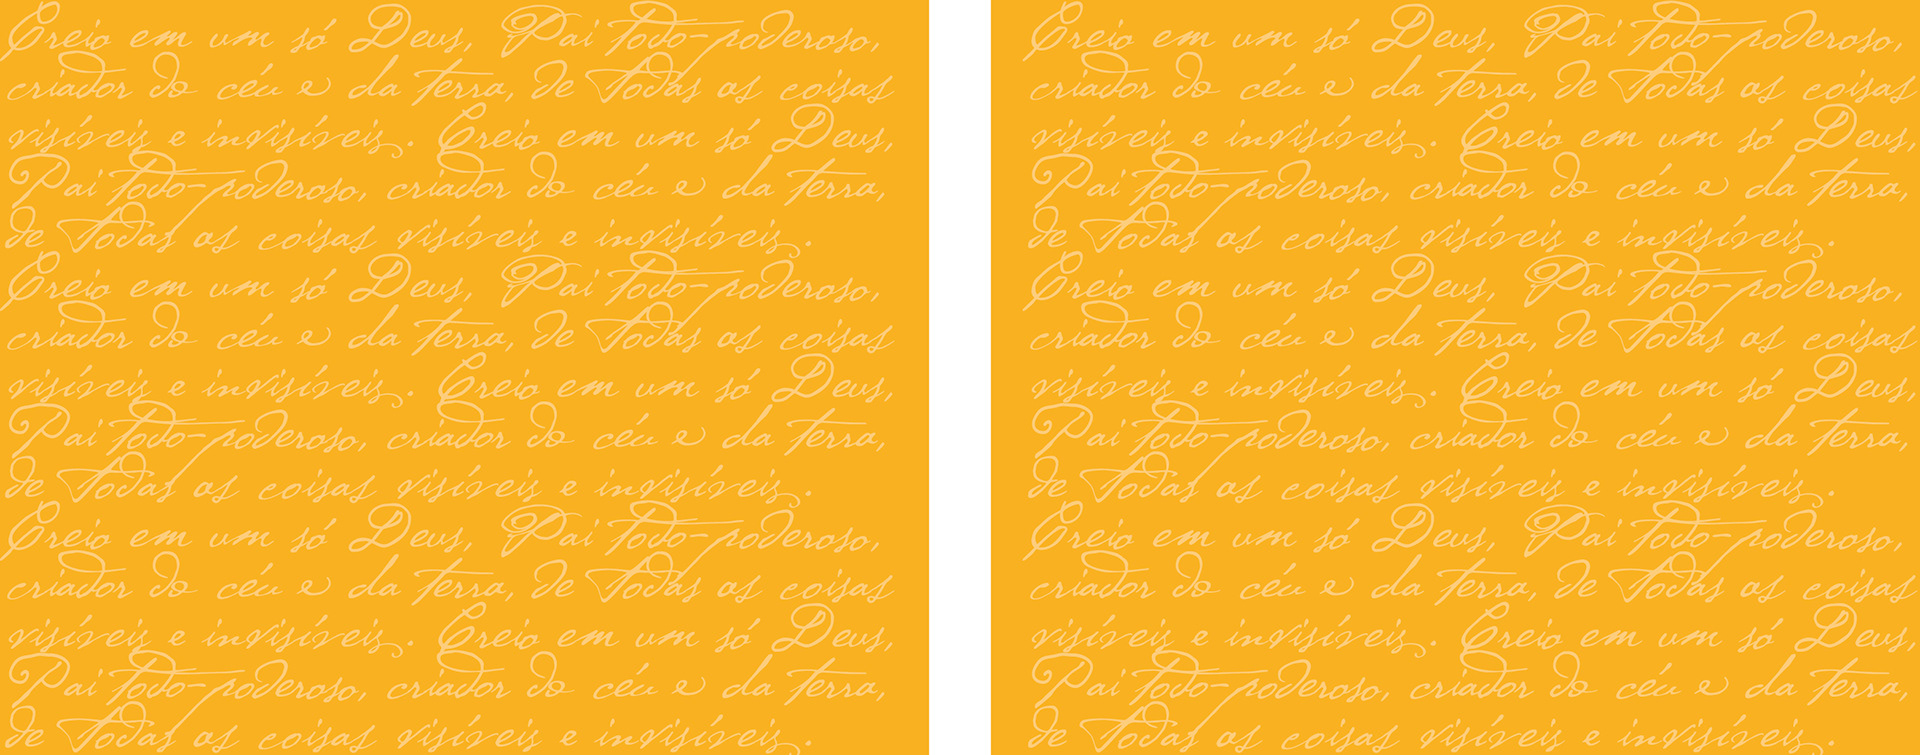 Creio em um só Deus, Pai todo-poderoso,
criador do céu e da terra, de todas as coisas
visíveis e invisíveis. Creio em um só Deus,
Pai todo-poderoso, criador do céu e da terra,
de todas as coisas visíveis e invisíveis.
Creio em um só Deus, Pai todo-poderoso,
criador do céu e da terra, de todas as coisas
visíveis e invisíveis. Creio em um só Deus,
Pai todo-poderoso, criador do céu e da terra,
de todas as coisas visíveis e invisíveis.
Creio em um só Deus, Pai todo-poderoso,
criador do céu e da terra, de todas as coisas
visíveis e invisíveis. Creio em um só Deus,
Pai todo-poderoso, criador do céu e da terra,
de todas as coisas visíveis e invisíveis.
Creio em um só Deus, Pai todo-poderoso,
criador do céu e da terra, de todas as coisas
visíveis e invisíveis. Creio em um só Deus,
Pai todo-poderoso, criador do céu e da terra,
de todas as coisas visíveis e invisíveis.
Creio em um só Deus, Pai todo-poderoso,
criador do céu e da terra, de todas as coisas
visíveis e invisíveis. Creio em um só Deus,
Pai todo-poderoso, criador do céu e da terra,
de todas as coisas visíveis e invisíveis.
Creio em um só Deus, Pai todo-poderoso,
criador do céu e da terra, de todas as coisas
visíveis e invisíveis. Creio em um só Deus,
Pai todo-poderoso, criador do céu e da terra,
de todas as coisas visíveis e invisíveis.